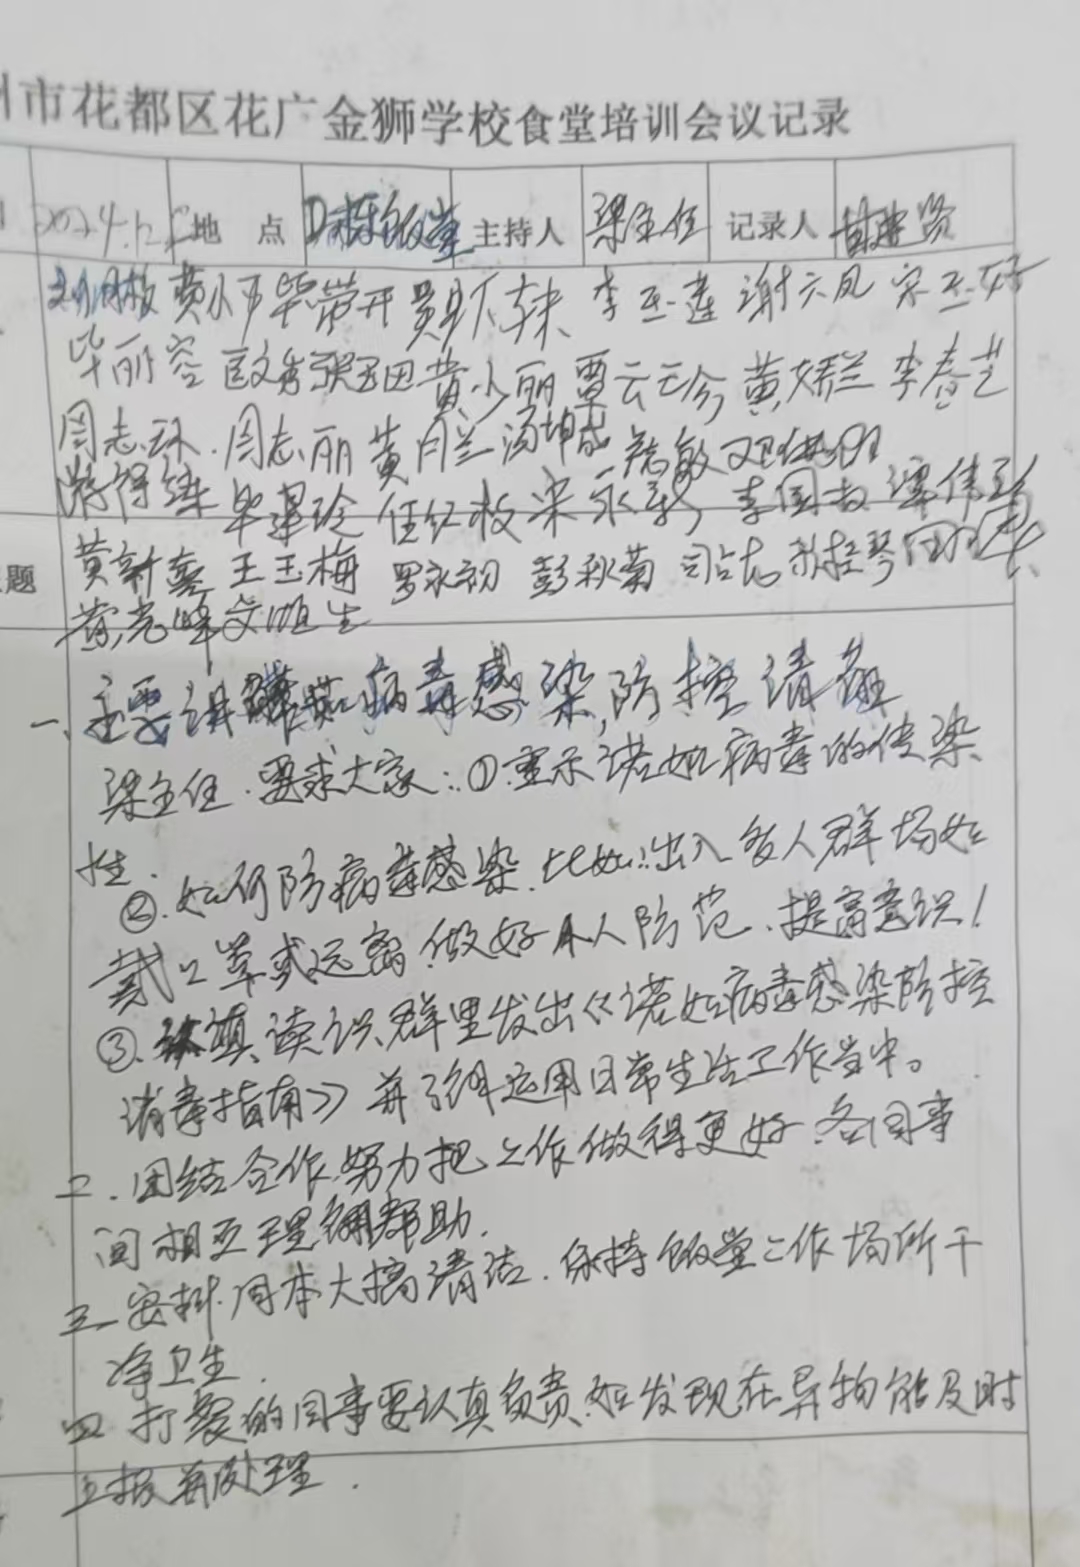 州市花都区花广金狮学校食堂培训会议记录
2024.12 地 点 饭堂 主持人 梁主任 记录人
黄小 毕带开 李玉莲 谢六凤 宋玉好
毕丽容 黄少丽 覃云云珍 黄娇兰 李春艺
周志环 周志丽 黄月兰 汤坤成
毕翠玲 任红枚 宋永彩 李国 谭伟
题 黄新喜 王玉梅 罗永初 彭秋菊
黄志峰 文顺生
一、主要讲 诺如病毒感染,防控请
梁主任.要求大家:①重示诺如病毒的传染
性.
②.如何防病毒感染.比如:出入多人群场如
戴口罩或远离.做好个人防范、提高意识!
③.认真读识群里发出《诺如病毒感染防控
消毒指南》并了解运用日常生活工作当中。
二.团结合作.努力把工作做得更好.各同事
间相互理解帮助.
三.安排.周末大搞清洁.保持饭堂工作场所干
净卫生.
四.打餐的同事要认真负责.如发现在异物能及时
上报并处理.